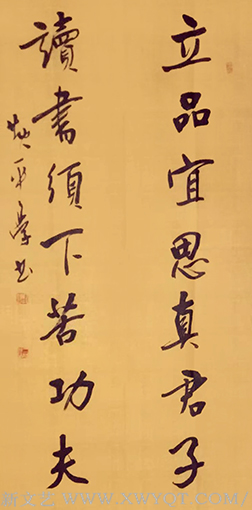 立品宜思真君子
讀書須下苦功夫
新文艺 WWW.XWYQT.COM